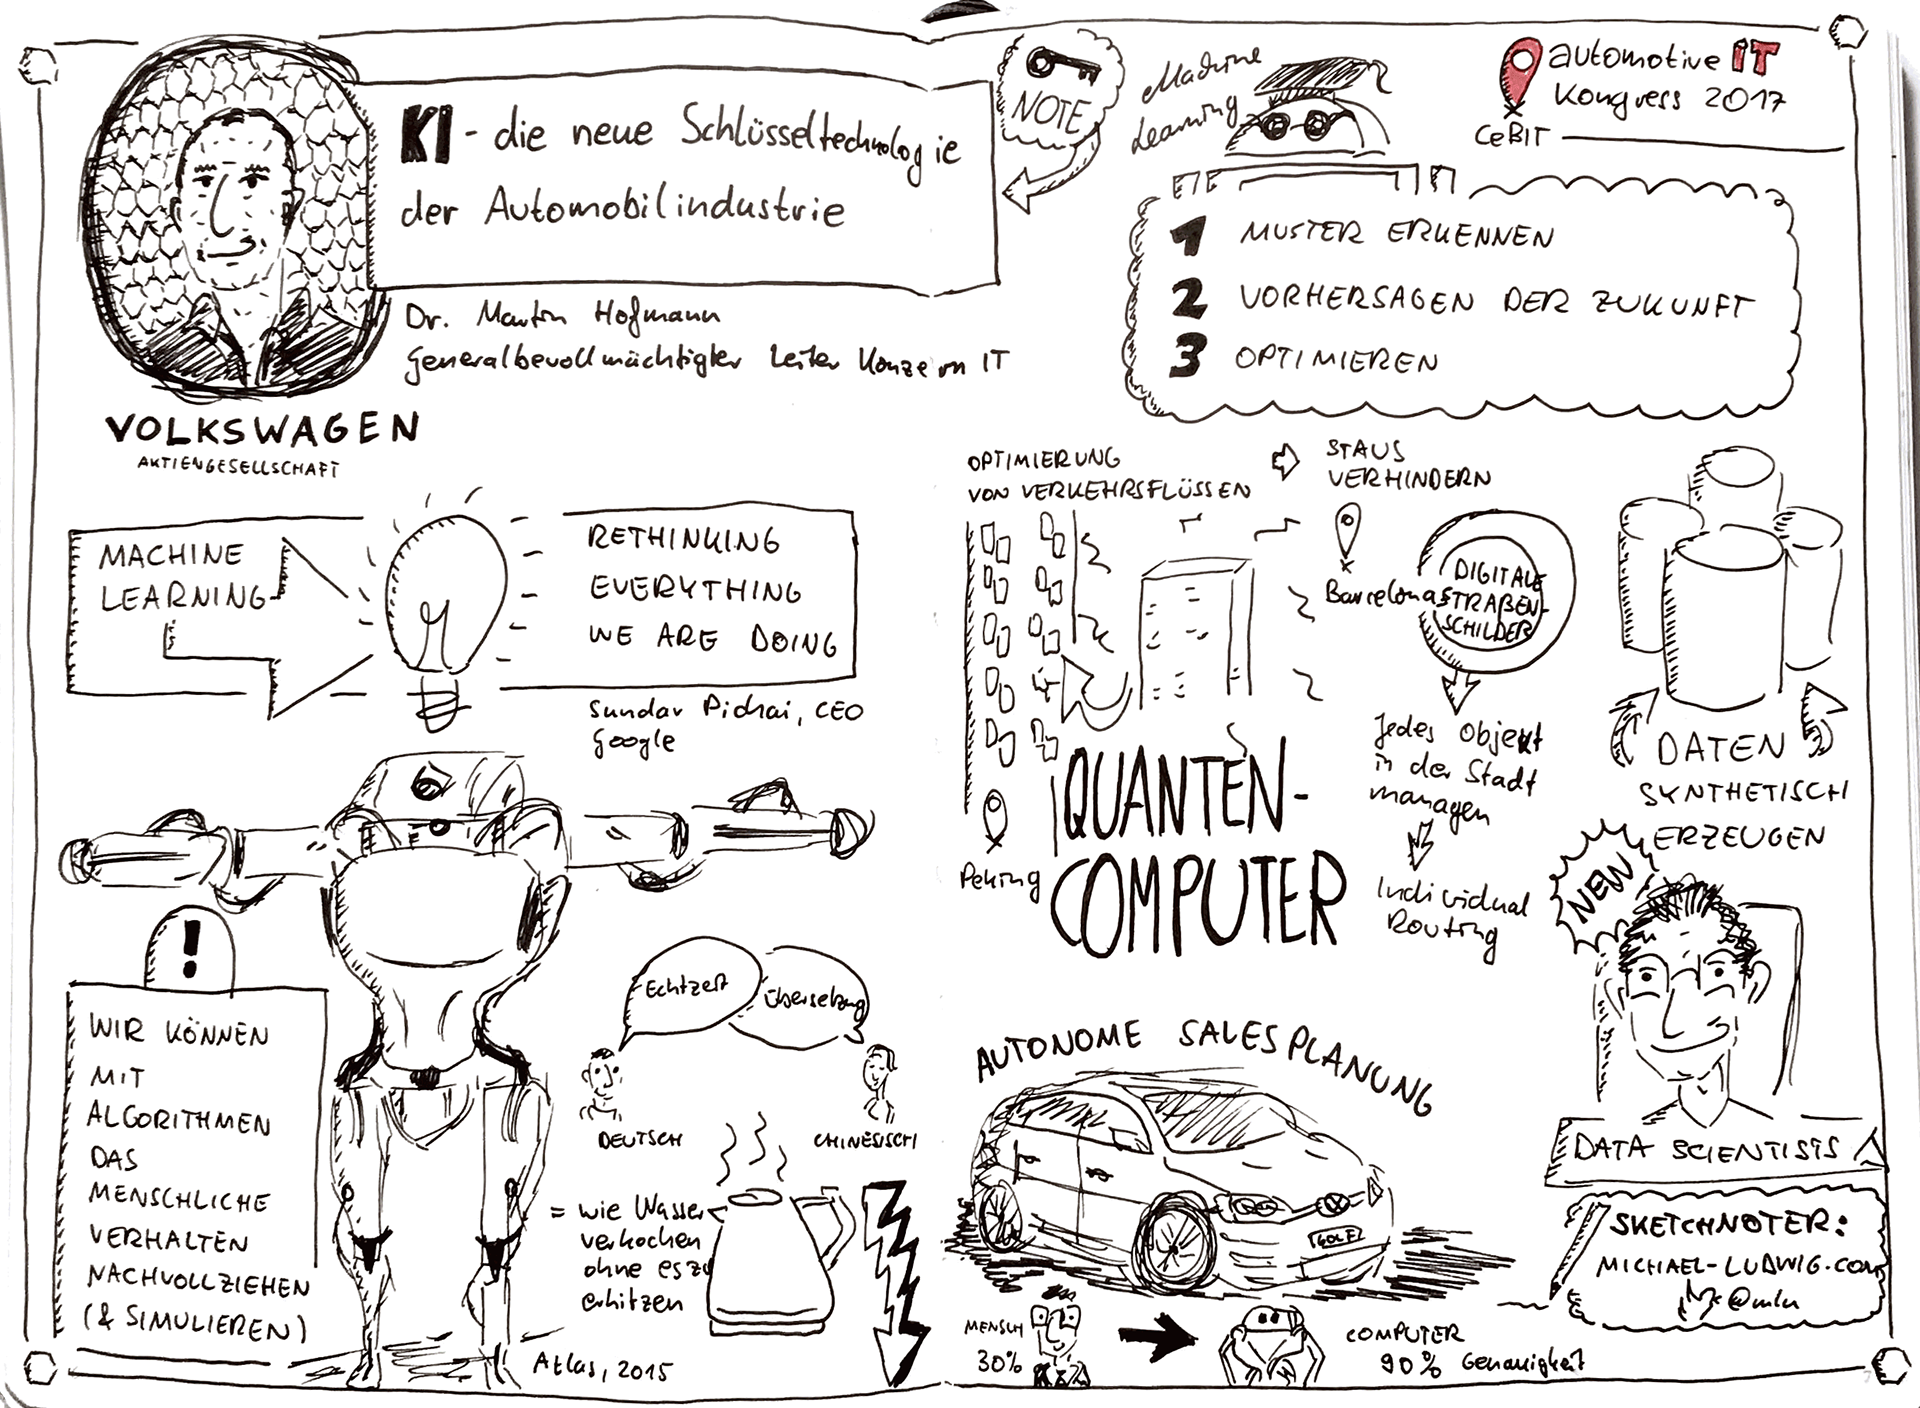 KI - die neue Schlüsseltechnologie
der Automobilindustrie
Dr. Martin Hofmann
Generalbevollmächtigter Leiter Konzern IT
VOLKSWAGEN
AKTIENGESELLSCHAFT
NOTE
Machine
Learning
automotive IT
Kongress 2017
CeBIT
1 MUSTER ERKENNEN
2 VORHERSAGEN DER ZUKUNFT
3 OPTIMIEREN
MACHINE
LEARNING
RETHINKING
EVERYTHING
WE ARE DOING
Sundar Pichai, CEO
Google
!
WIR KÖNNEN
MIT
ALGORITHMEN
DAS
MENSCHLICHE
VERHALTEN
NACHVOLLZIEHEN
(& SIMULIEREN)
Atlas, 2015
Echtzeit
Übersetzung
DEUTSCH
CHINESISCH
= wie Wasser
verkochen
ohne es zu
erhitzen
OPTIMIERUNG
VON VERKEHRSFLÜSSEN
STAUS
VERHINDERN
Peking
QUANTEN-
COMPUTER
Barcelona
DIGITALE
STRAßEN-
SCHILDER
Jedes Objekt
in der Stadt
managen
Individual
Routing
DATEN
SYNTHETISCH
ERZEUGEN
NEW
DATA SCIENTISTS
AUTONOME SALESPLANUNG
GOLF
MENSCH
30%
COMPUTER
90% Genauigkeit
SKETCHNOTER:
MICHAEL-LUDWIG.COM